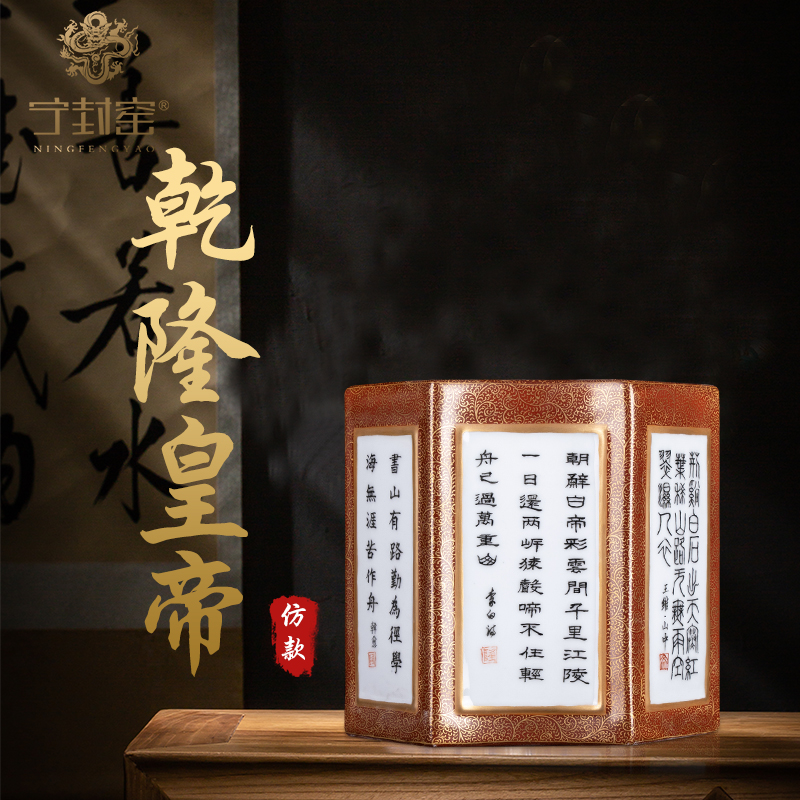 宁封窑®
NINGFENGYAO
乾隆皇帝
仿款
善若水
書山有路勤為徑學
海無涯苦作舟 韓愈
朝辭白帝彩雲間千里江陵
一日還两岸猿聲啼不住輕
舟已過萬重山 李白詩
荊谿白石出天寒紅
葉稀山路元無雨空
翠濕人衣 王維山中